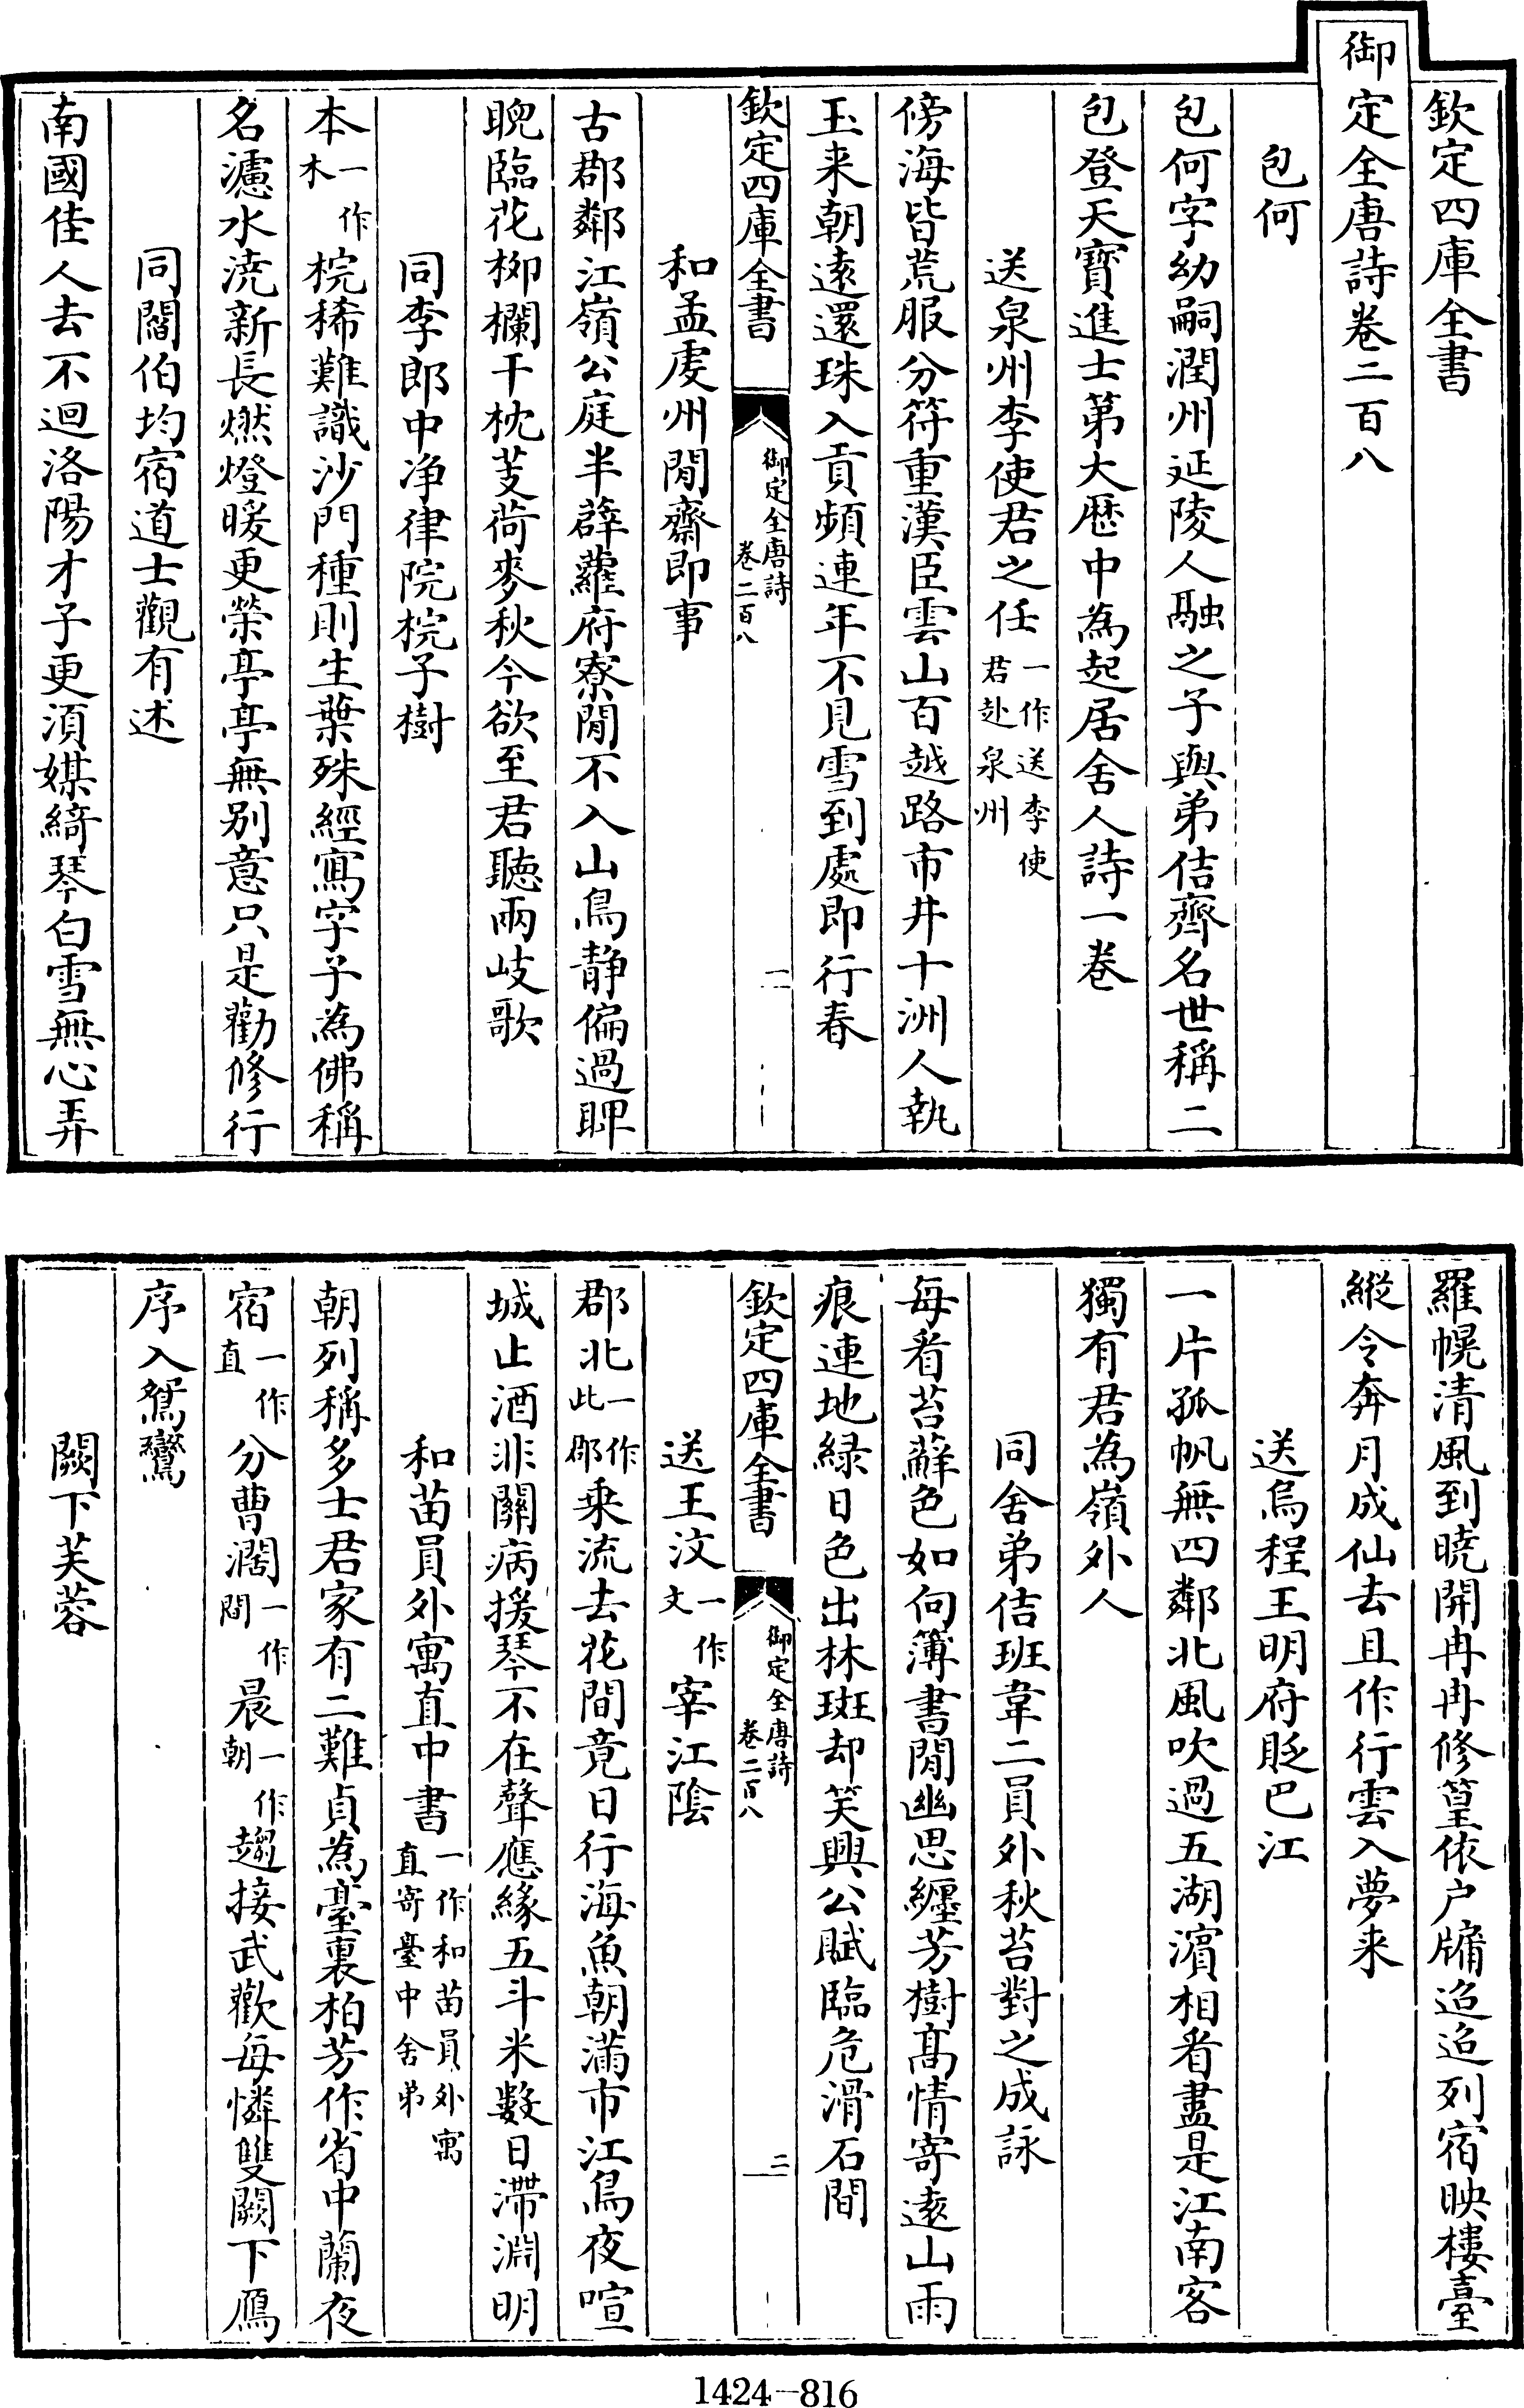 欽定四庫全書
御定全唐詩卷二百八
包何
包何字幼嗣潤州延陵人融之子與弟佶齊名世稱二
包登天寶進士第大厯中為起居舍人詩一卷
送泉州李使君之任一作送李使君赴泉州
傍海皆荒服分符重漢臣雲山百越路市井十洲人執
玉来朝逺還珠入貢頻連年不見雪到處即行春
欽定四庫全書
御定全唐詩
卷二百八
一
和孟虔州閒齋即事
古郡鄰江嶺公庭半薜蘿府寮閒不入山鳥静偏過睥
睨臨花栁欄干枕芰荷麥秋今欲至君聽兩岐歌
同李郎中净律院梡子樹
本一作木梡稀難識沙門種則生葉殊經寫字子為佛稱
名濾水澆新長燃燈暖更榮亭亭無别意只是勸修行
同閻伯均宿道士觀有述
南國佳人去不迴洛陽才子更湏媒綺琴白雪無心弄
羅幌清風到曉開冉冉修篁依户牖迢迢列宿映樓臺
縱令奔月成仙去且作行雲入夢来
送烏程王明府貶巴江
一片孤帆無四鄰北風吹過五湖濵相看盡是江南客
獨有君為嶺外人
同舍弟佶班韋二員外秋苔對之成詠
每看苔蘚色如向簿書閒幽思纏芳樹髙情寄逺山雨
痕連地緑日色出林斑却笑興公賦臨危滑石間
欽定四庫全書
御定全唐詩
卷二百八
二
送王汶一作文宰江陰
郡北一作此郡乗流去花間竟日行海魚朝滿市江鳥夜喧
城止酒非關病援琴不在聲應緣五斗米數日滯淵明
和苗員外寓直中書一作和苗員外寓直寄臺中舍弟
朝列稱多士君家有二難貞為臺裏柏芳作省中蘭夜
宿一作直分曹濶一作間晨一作朝趨接武歡每憐雙闕下鴈
序入鴛鸞
闕下芙蓉
1424—816